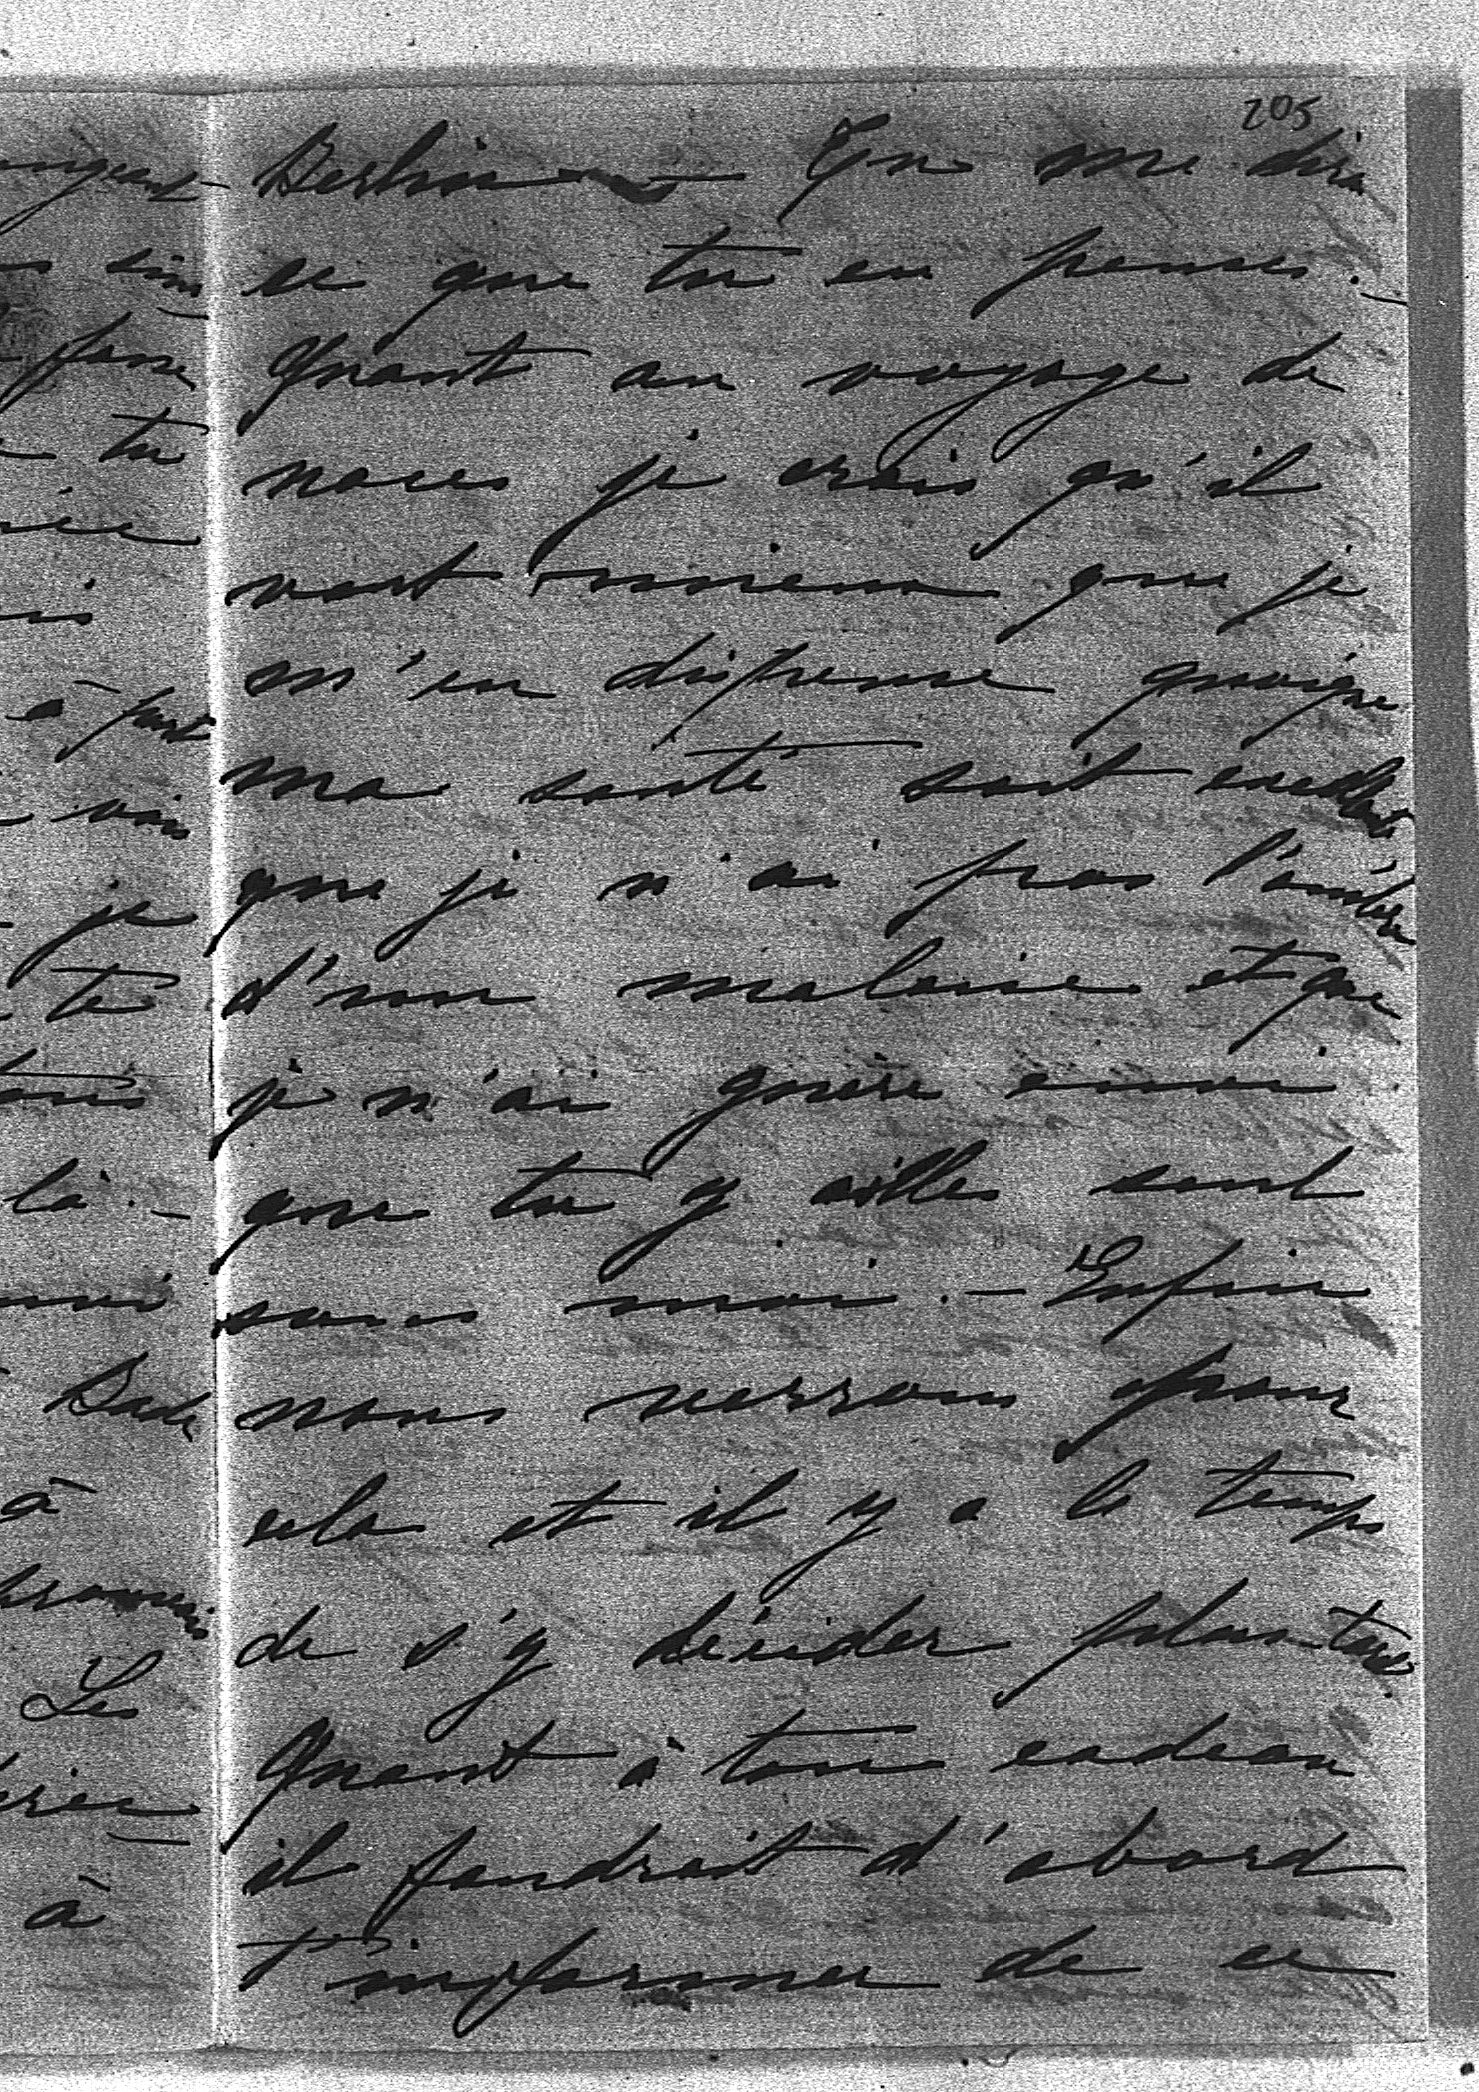 205
Berlin — Tu me dira
ce que tu en penses. —
Quant au voyage de
noces je crois qu'il
vaut mieux que je
m'en dispense quoique
ma santé soit excellente
que je n'ai pas l'ombre
d'un malaise et que
je n'ai guère envie
que tu y ailles seul
sans moi. — Enfin
nous verrons pour
cela et il y a le temps
de s'y décider plus tard.
Quant à ton cadeau
il faudrait d'abord
t'informer de ce
tu
à part
je
te
là. —
Bade
à
Les
à